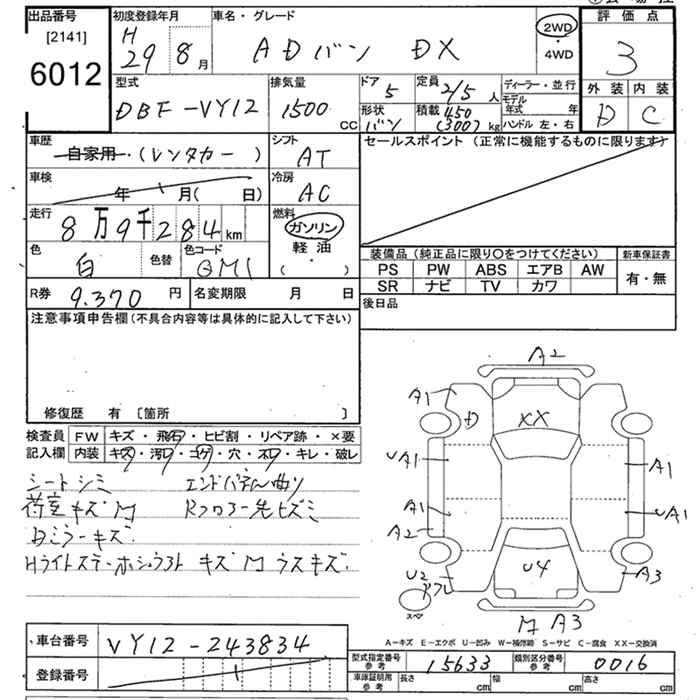 出品番号 初度登録年月 車名・グレード 評価点
[2141] H 2WD
6012 29 8月 ADバン DX ・ 4WD 3
型式 排気量 ドア 定員 ディーラー・並行 外装 内装
DBF-VY12 1500 CC 5 2/5人 モデル年式 年 D C
形状 バン 積載 450 (300)kg ハンドル 左・右
車歴 自家用・(レンタカー) シフト AT セールスポイント (正常に機能するものに限ります)
車検 年 月( 日) 冷房 AC
走行 8万9千284km 燃料 ガソリン
色 白 色替 色コード QM1 軽油 ( ・ )
装備品(純正品に限り○をつけてください) 新車保証書
PS PW ABS エアB AW 有・無
SR ナビ TV カワ
R券 9,370円 名変期限 月 日 後日品
注意事項申告欄(不具合内容等は具体的に記入して下さい)
修復歴 有 [箇所 ]
検査員 FW キズ・飛石・ヒビ割・リペア跡・×要
記入欄 内装 キズ・汚レ・コゲ・穴・スレ・キレ・破レ
シートシミ エンドパネル曲り
荷室キズM Rフロアー先ヒズミ
ミラーキズ
キズM ウスキズ
A2
A1 D XX
UA1 A1
A1 UA1
A2
U2 U4 A3
スペア
M A3
A-キズ E-エクボ U-凹み W-補修跡 S-サビ C-腐食 XX-交換済
車台番号 VY12-243834
登録番号
型式指定番号 参考 15633 類別区分番号 参考 0016
車庫証明用 参考 長さ cm 幅 cm 高さ cm